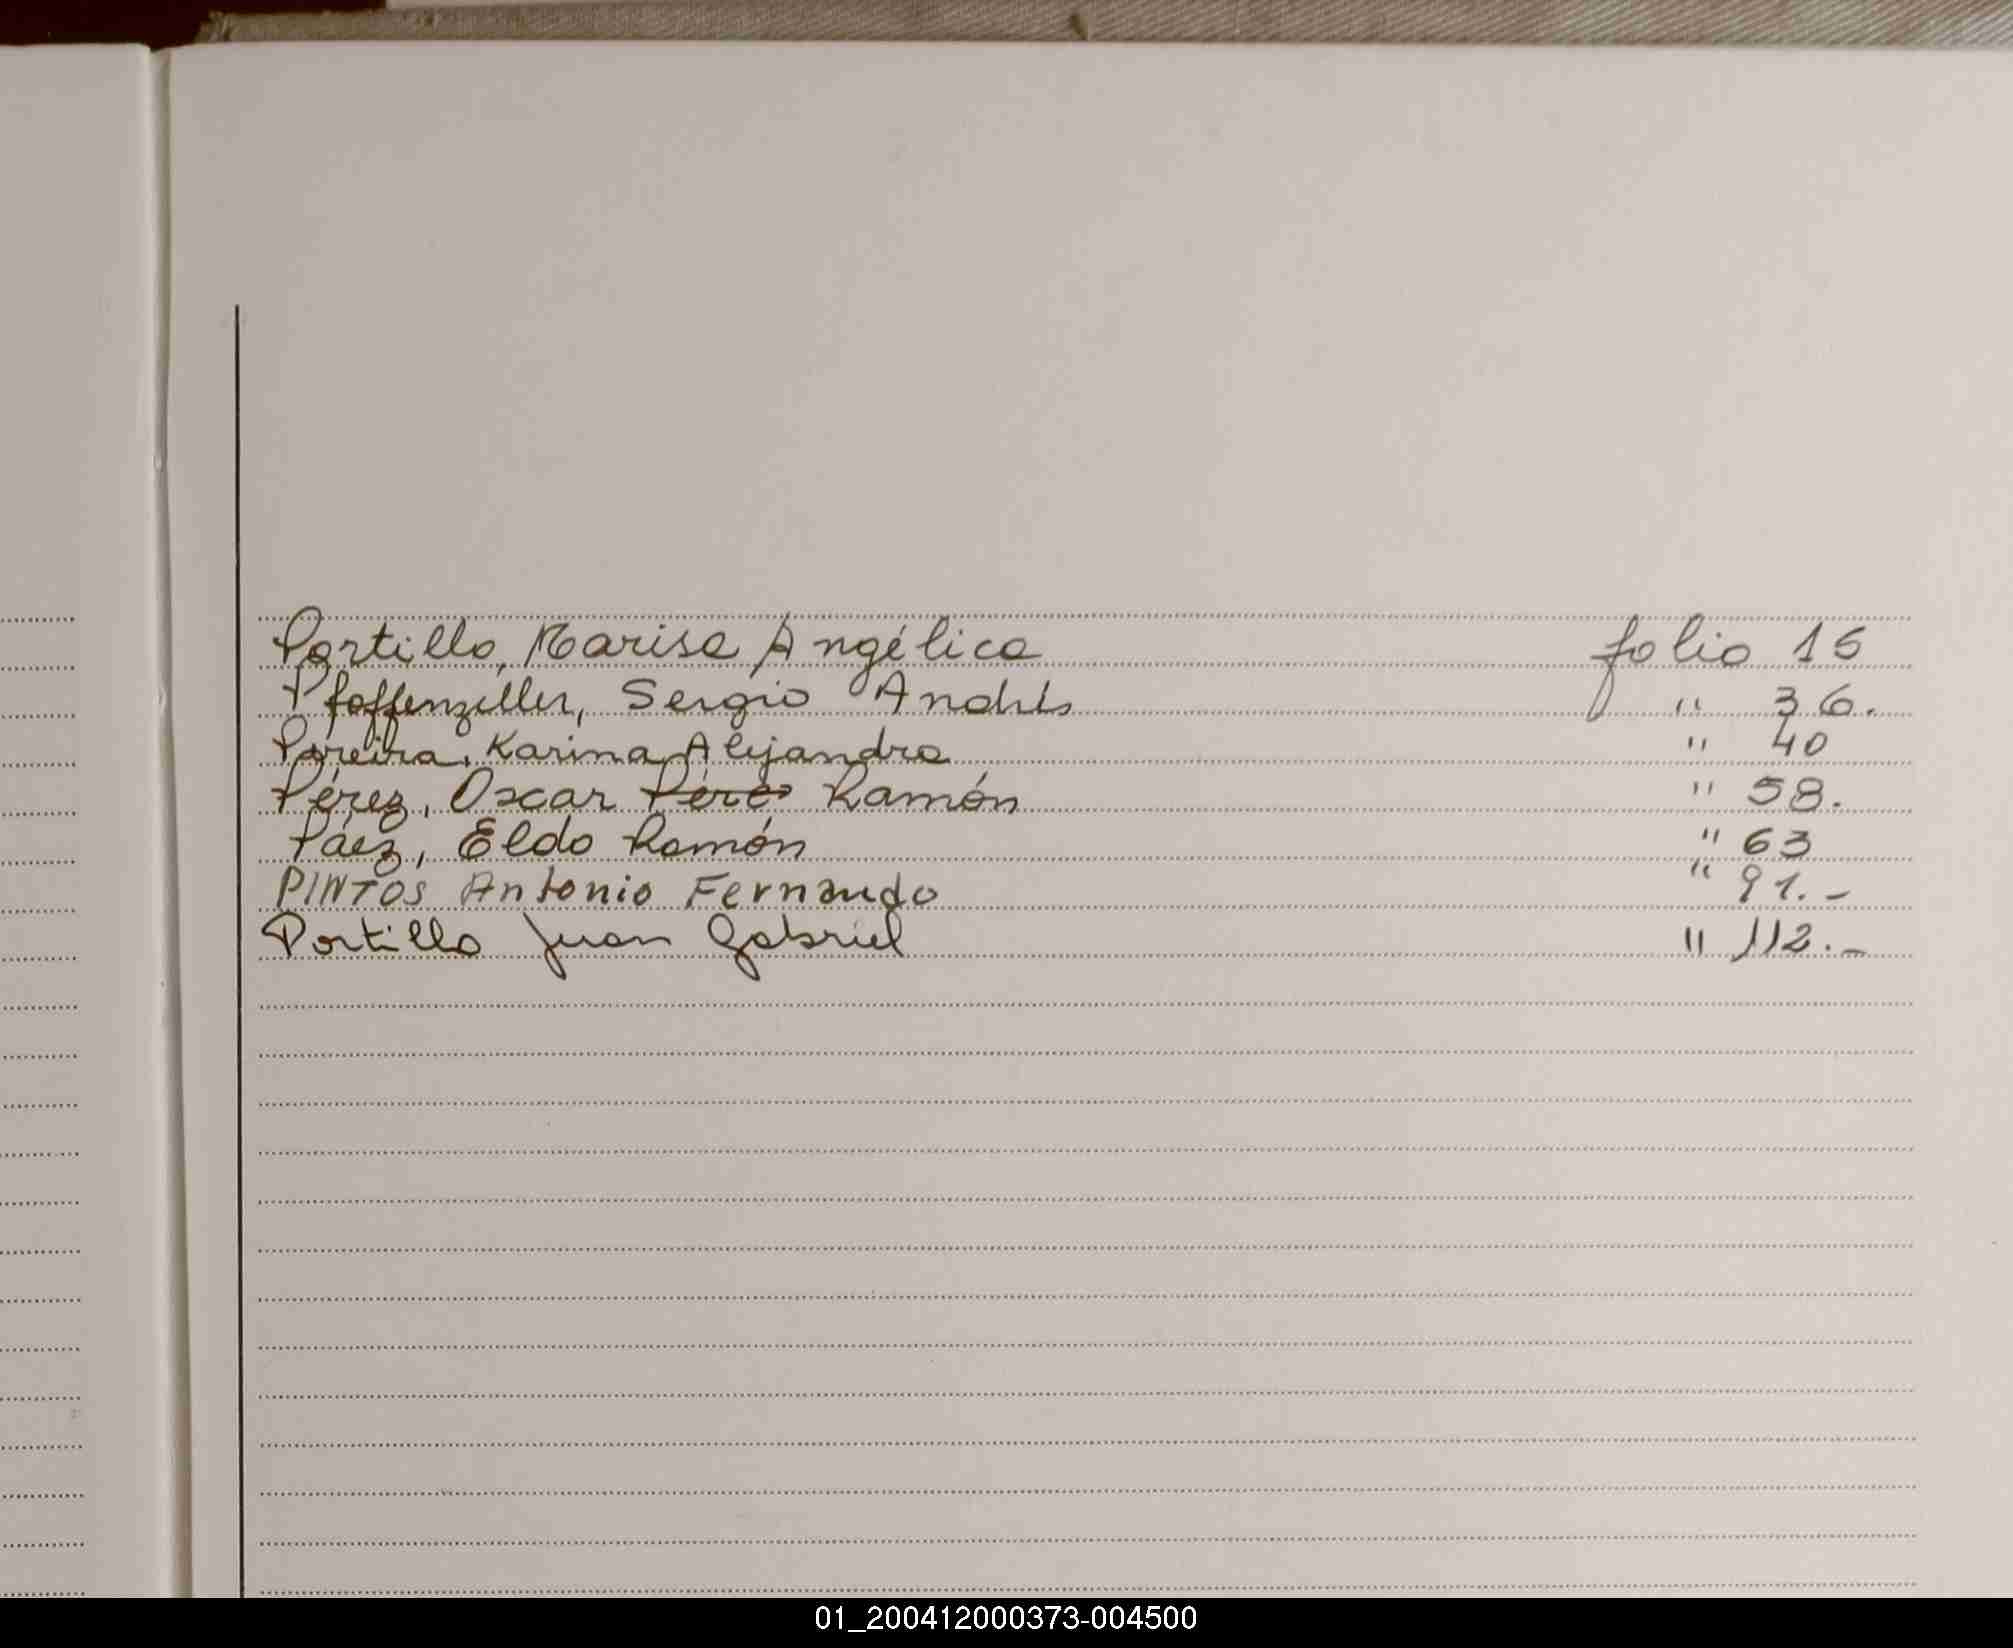 Portillo, Marisa Angélica folio 15
Pfaffenziller, Sergio Andrés " 36.
Pereira, Karina Alejandra " 40
Pérez, Oscar Pére Ramón " 58.
Páez, Eldo Ramón " 63
PINTOS Antonio Fernando " 91.-
Portillo Juan Gabriel " 112.-
01_200412000373-004500